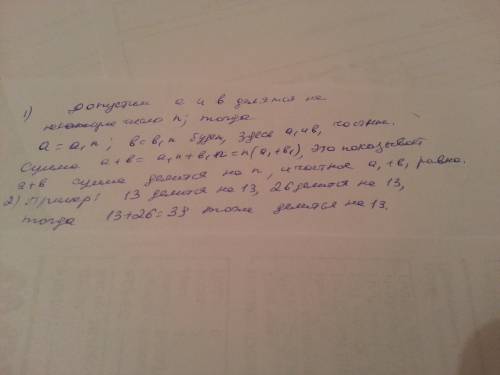 1) Допустим а и в делятся на
некоторое число n; тогда
a = a₁n; в = в₁n будет, здесь a₁ и в₁ частные.
Сумма a+в = a₁n+в₁n = n(a₁+в₁), это показывает
a+в сумма делится на n, и частное a₁+в₁ равна.
2) Пример: 13 делится на 13, 26 делится на 13,
тогда 13+26=39 тоже делится на 13.